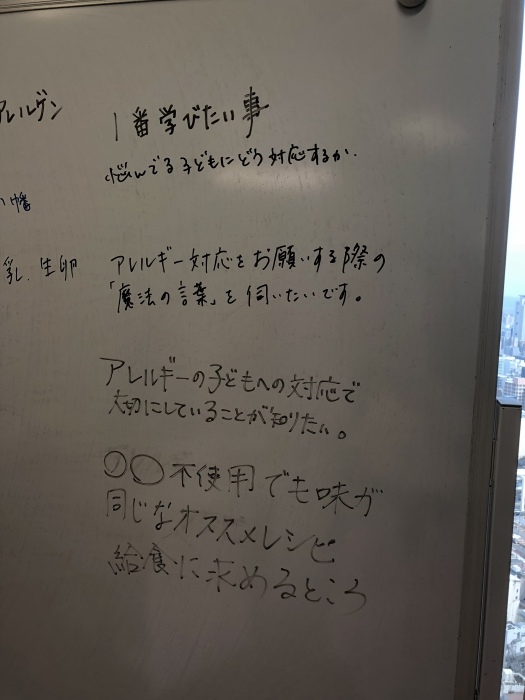 アレルゲン
1番学びたい事
悩んでる子どもにどう対応するか.
幡
乳. 生卵
アレルギー対応をお願いする際の
「魔法の言葉」を伺いたいです。
アレルギーの子どもへの対応で
大切にしていることが知りたい。
〇〇不使用でも味が
同じなオススメレシピ
給食に求めるところ